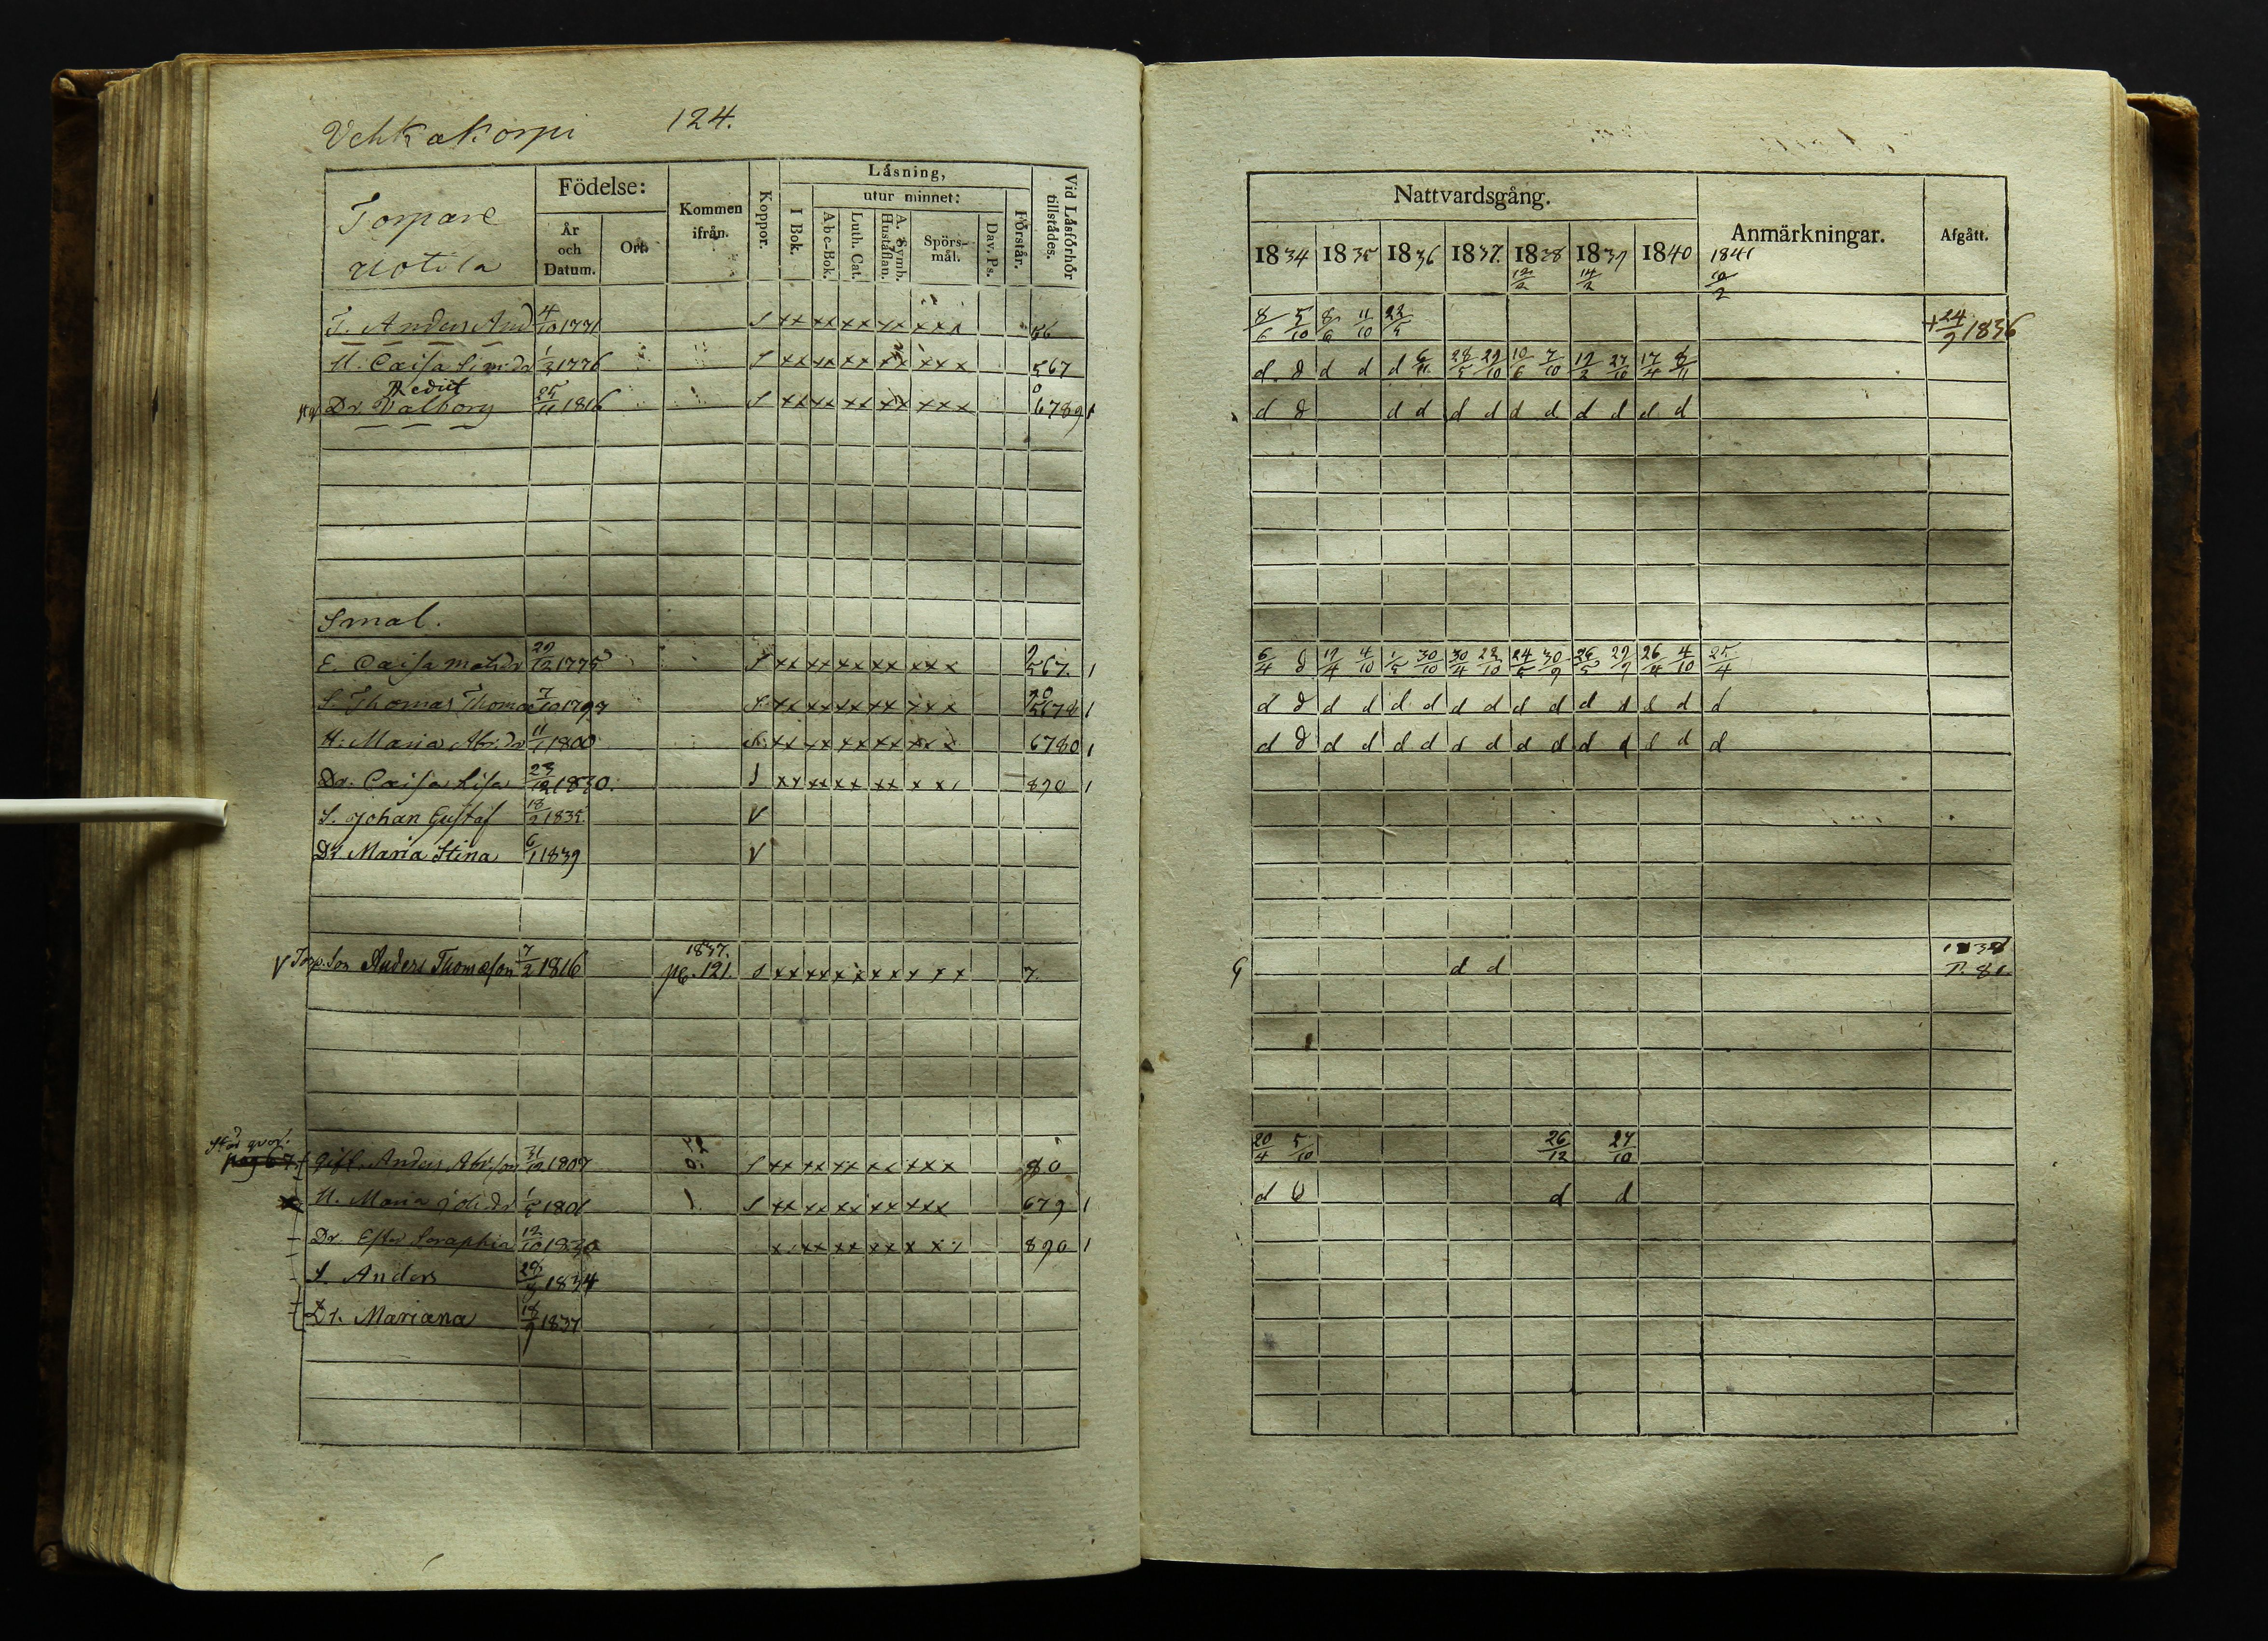 Vehkakorpi 124.
Torpare
Uotila
Födelse:
År och Datum.
Ort.
Kommen ifrån.
Koppor.
Läsning,
utur minnet:
I Bok.
Abc-Bok.
Luth. Cat.
A. Symb. Hustaflan.
Spörsmål.
Dav. Ps.
Förstår.
Vid Läsförhör tillstädes.
T. Anders And 4/10 1771 S xx xx xx xx xxx 56
H. Caisa Sim:dr 1/3 1776 S xx xx xx xx xxx 567
Rediit
Dr. Valborg 25/11 1816 S xx xx xx xx xxx 0 6789 1
Smal.
E. Caisa Matsdr 29/12 1775 S xx xx xx xx xxx 9 567. 1
S. Thomas Thomas 7/10 1797 xx xx xx xx xxx 5678 1
H. Maria Abr:dr 11/1 1800 xx xx xx xx xxx 6780 1
Dr. Caisa Lisa 23/12 1830. S xx xx xx xx x x 890 1
S. Johan Gustaf 18/2 1835 V
Dr Maria Stina 6/1 1839 V
V Torp. Son Anders Thomasson 7/2 1816 1837. pg. 121. xx xx xx xx x x x 7.
pag 67
Gift. Anders Abr:son 31/12 1807 S xx xx xx xx xxx 80
H. Maria Joh:dr 1/5 1801 1. S xx xx xx xx xxx 679 1
Dr. Ester Seraphia 12/10 1830 x xx xx xx x x 890 1
S. Anders 28/9 1834
Dr. Mariana 18/9 1837
Nattvardsgång.
Anmärkningar.
Afgått.
1834 1835 1836 1837. 1838 1839 1840 1841
12/2 14/2 10/2
8/6 5/10 8/6 11/10 22/5 + 24/9 1836
d d d d d 6/11 28/5 29/10 10/6 7/10 12/2 27/10 17/4 8/11
d d d d d d d d d d d d
6/4 d 12/4 4/10 1/5 30/10 30/4 22/10 24/5 30/9 26/5 29/9 26/4 4/10 25/4
d d d d d d d d d d d d d d d
d d d d d d d d d d d d d d d
G d d 1838
P. 81.
20/4 5/10 26/12 27/10
d d d d